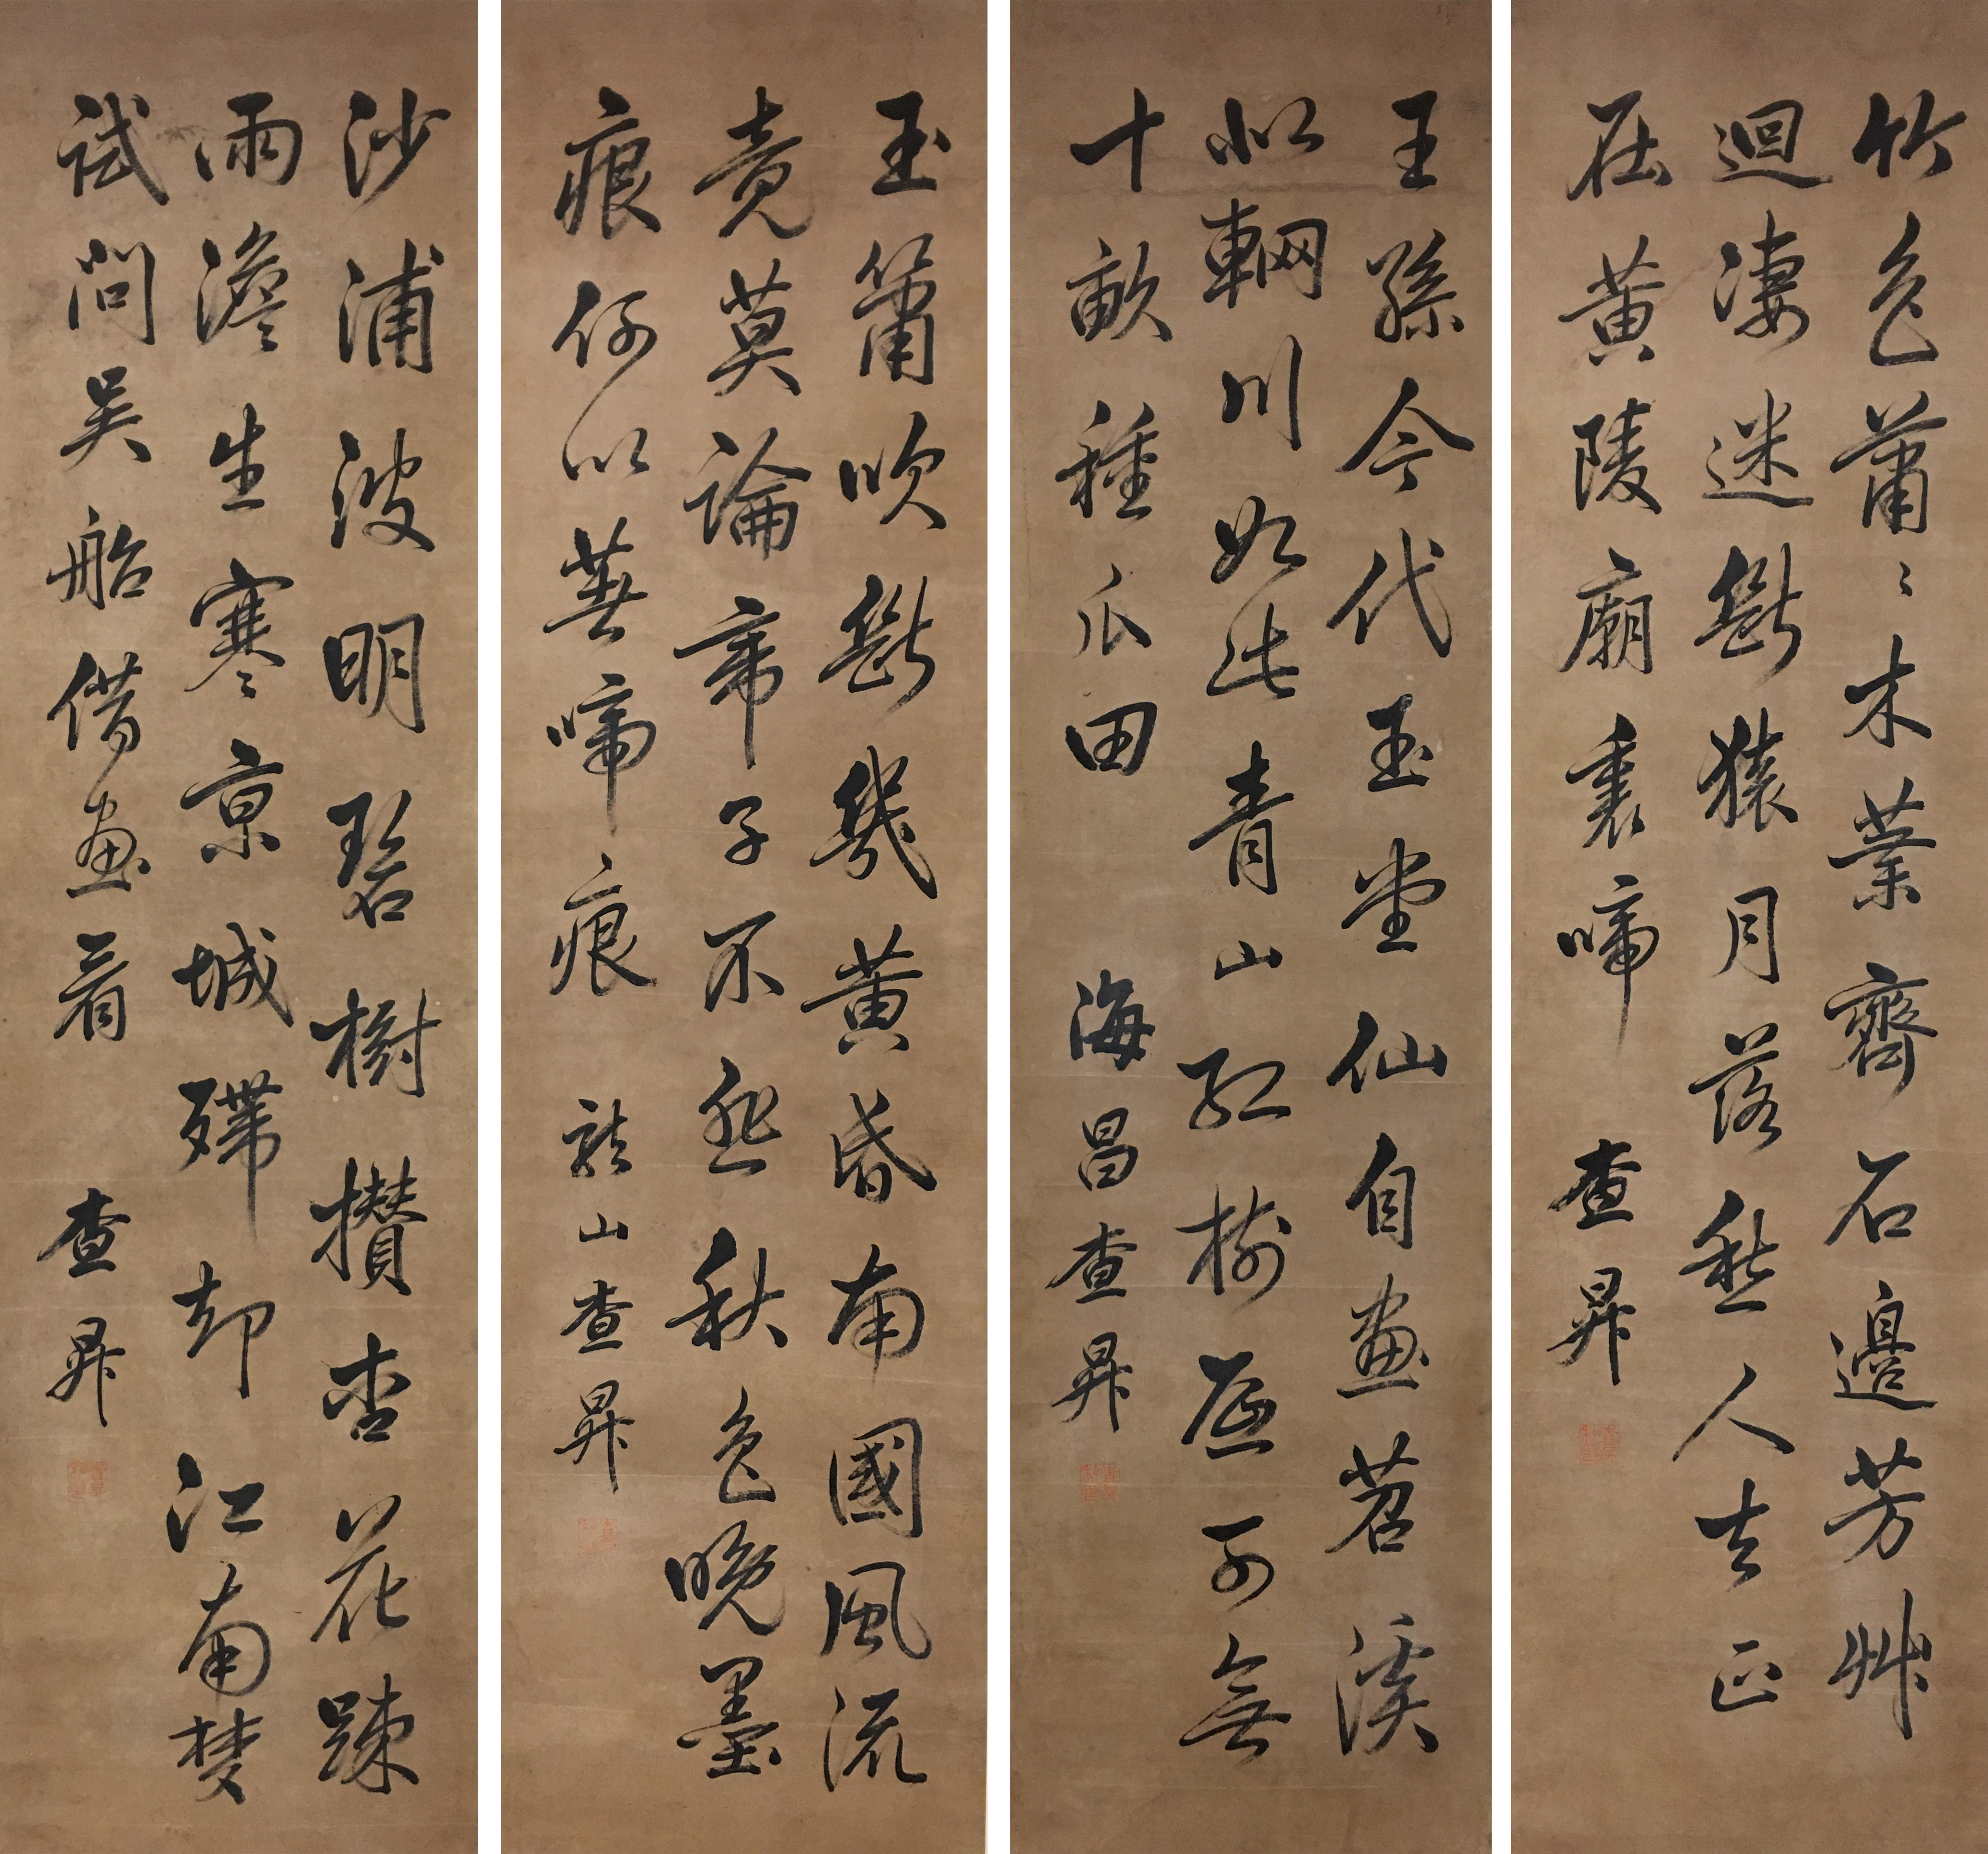 竹色蕭〻木葉齊石邊芳艸
迴凄迷斷猿月落愁人去正
在黃陵廟裏啼 查昇
王孫今代玉堂仙自畫苕溪
似輞川如此青山紅樹底可無
十畝種瓜田 海昌查昇
玉簫吹斷幾黃昏南國風流
竟莫論帝子不悲秋色晚墨
痕何似舊啼痕 龍山查昇
沙浦波明碧樹攢杏花踈
雨澹生寒京城殢却江南夢
試問吳船借畫看 查昇